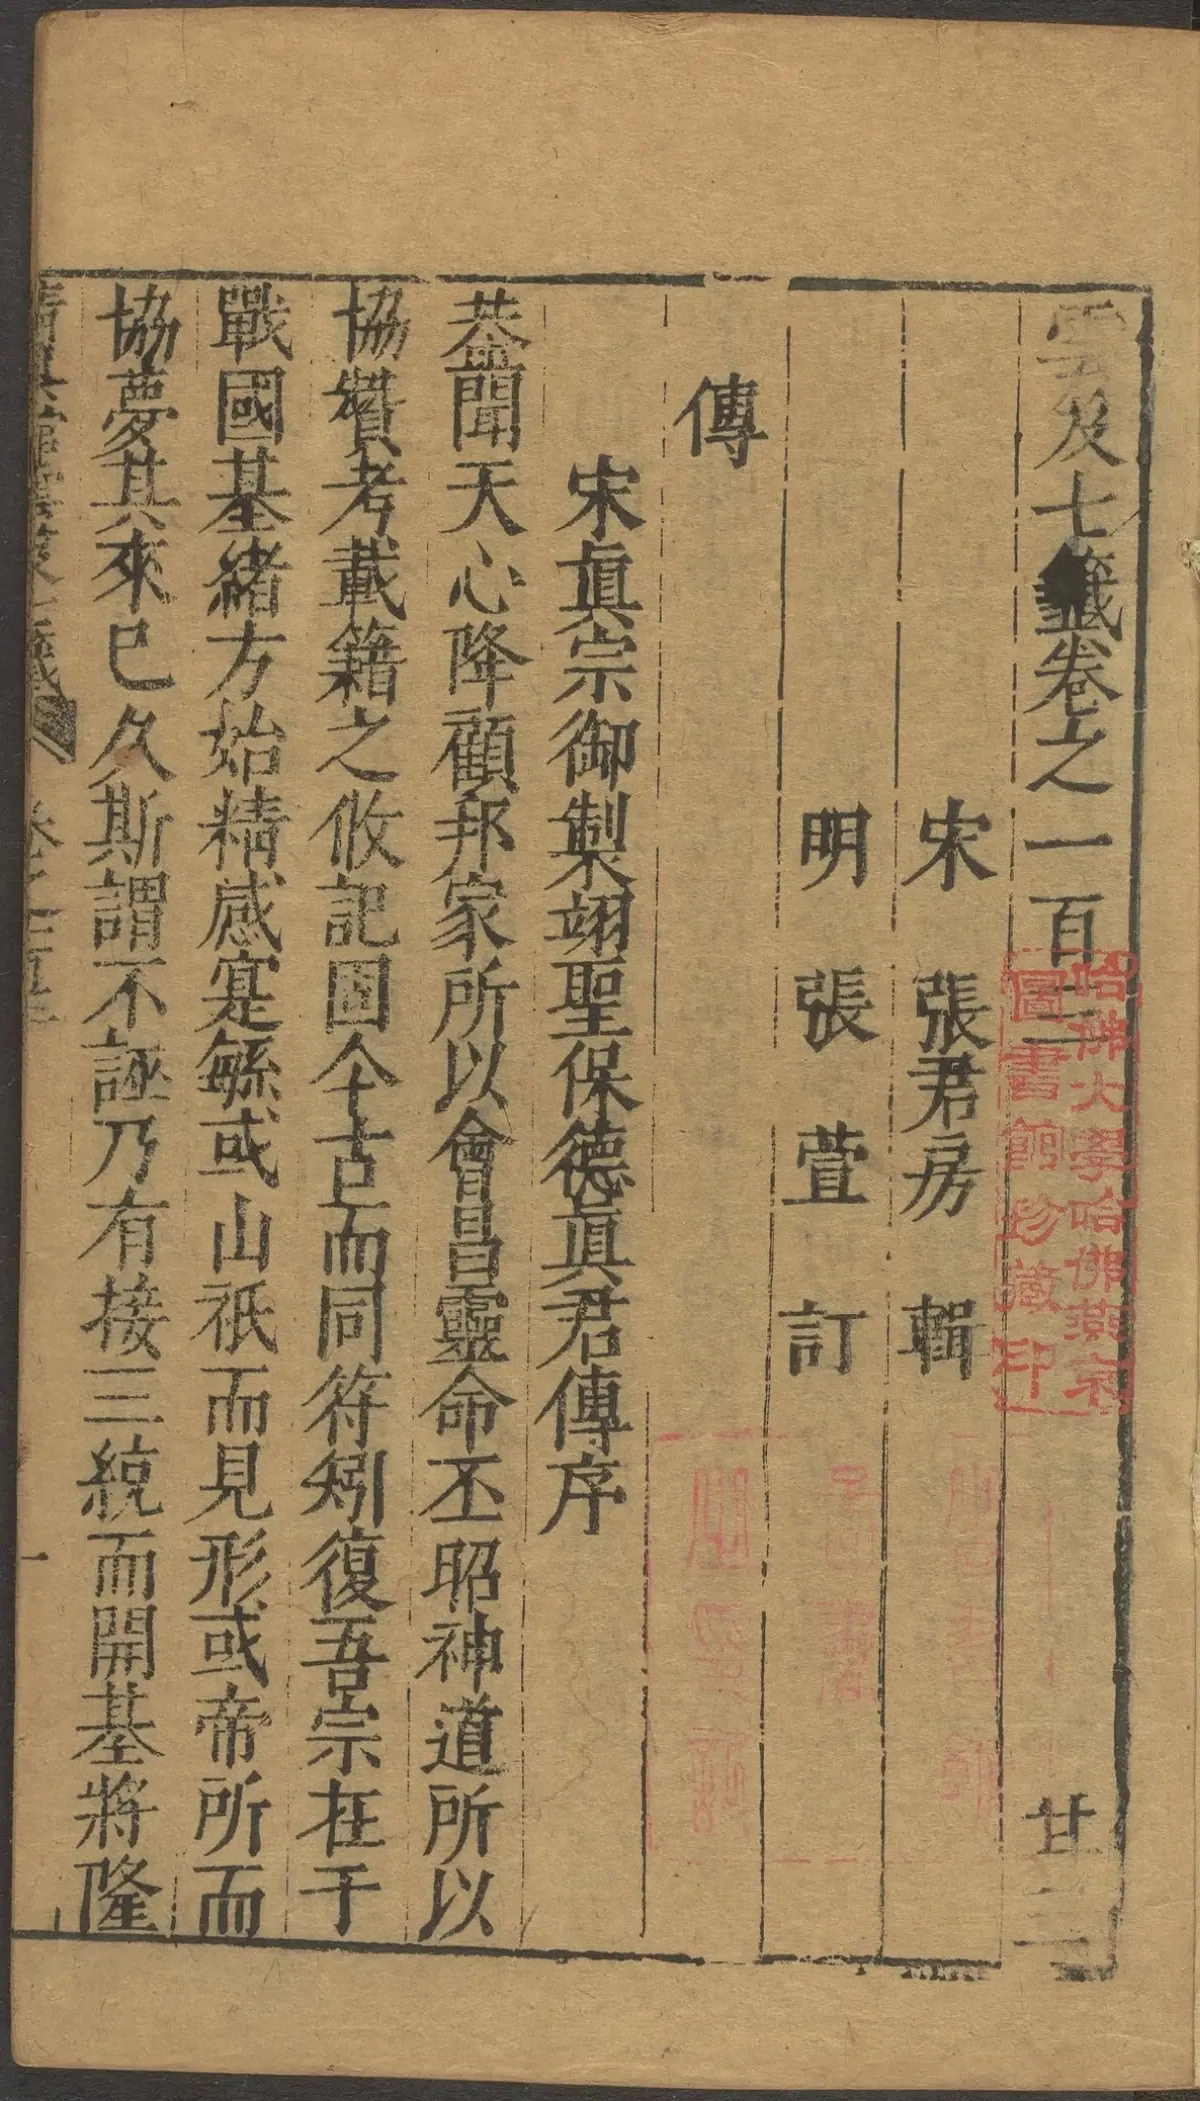 雲及七籤卷之一百三 廿三
宋 張君房 輯
明 張萱 訂
傳
宋眞宗御製翊聖保德眞君傳序
恭聞天心降顧邦家所以會昌靈命丕昭神道所以
協贊考載籍之攸記固今古而同符矧復吾宗在于
戰國基緒方始精感寔繇或山祇而見形或帝所而
協夢其來已久斯謂不誣乃有接三統而開基將隆
一
哈佛大學哈佛燕京
圖書館珍藏印